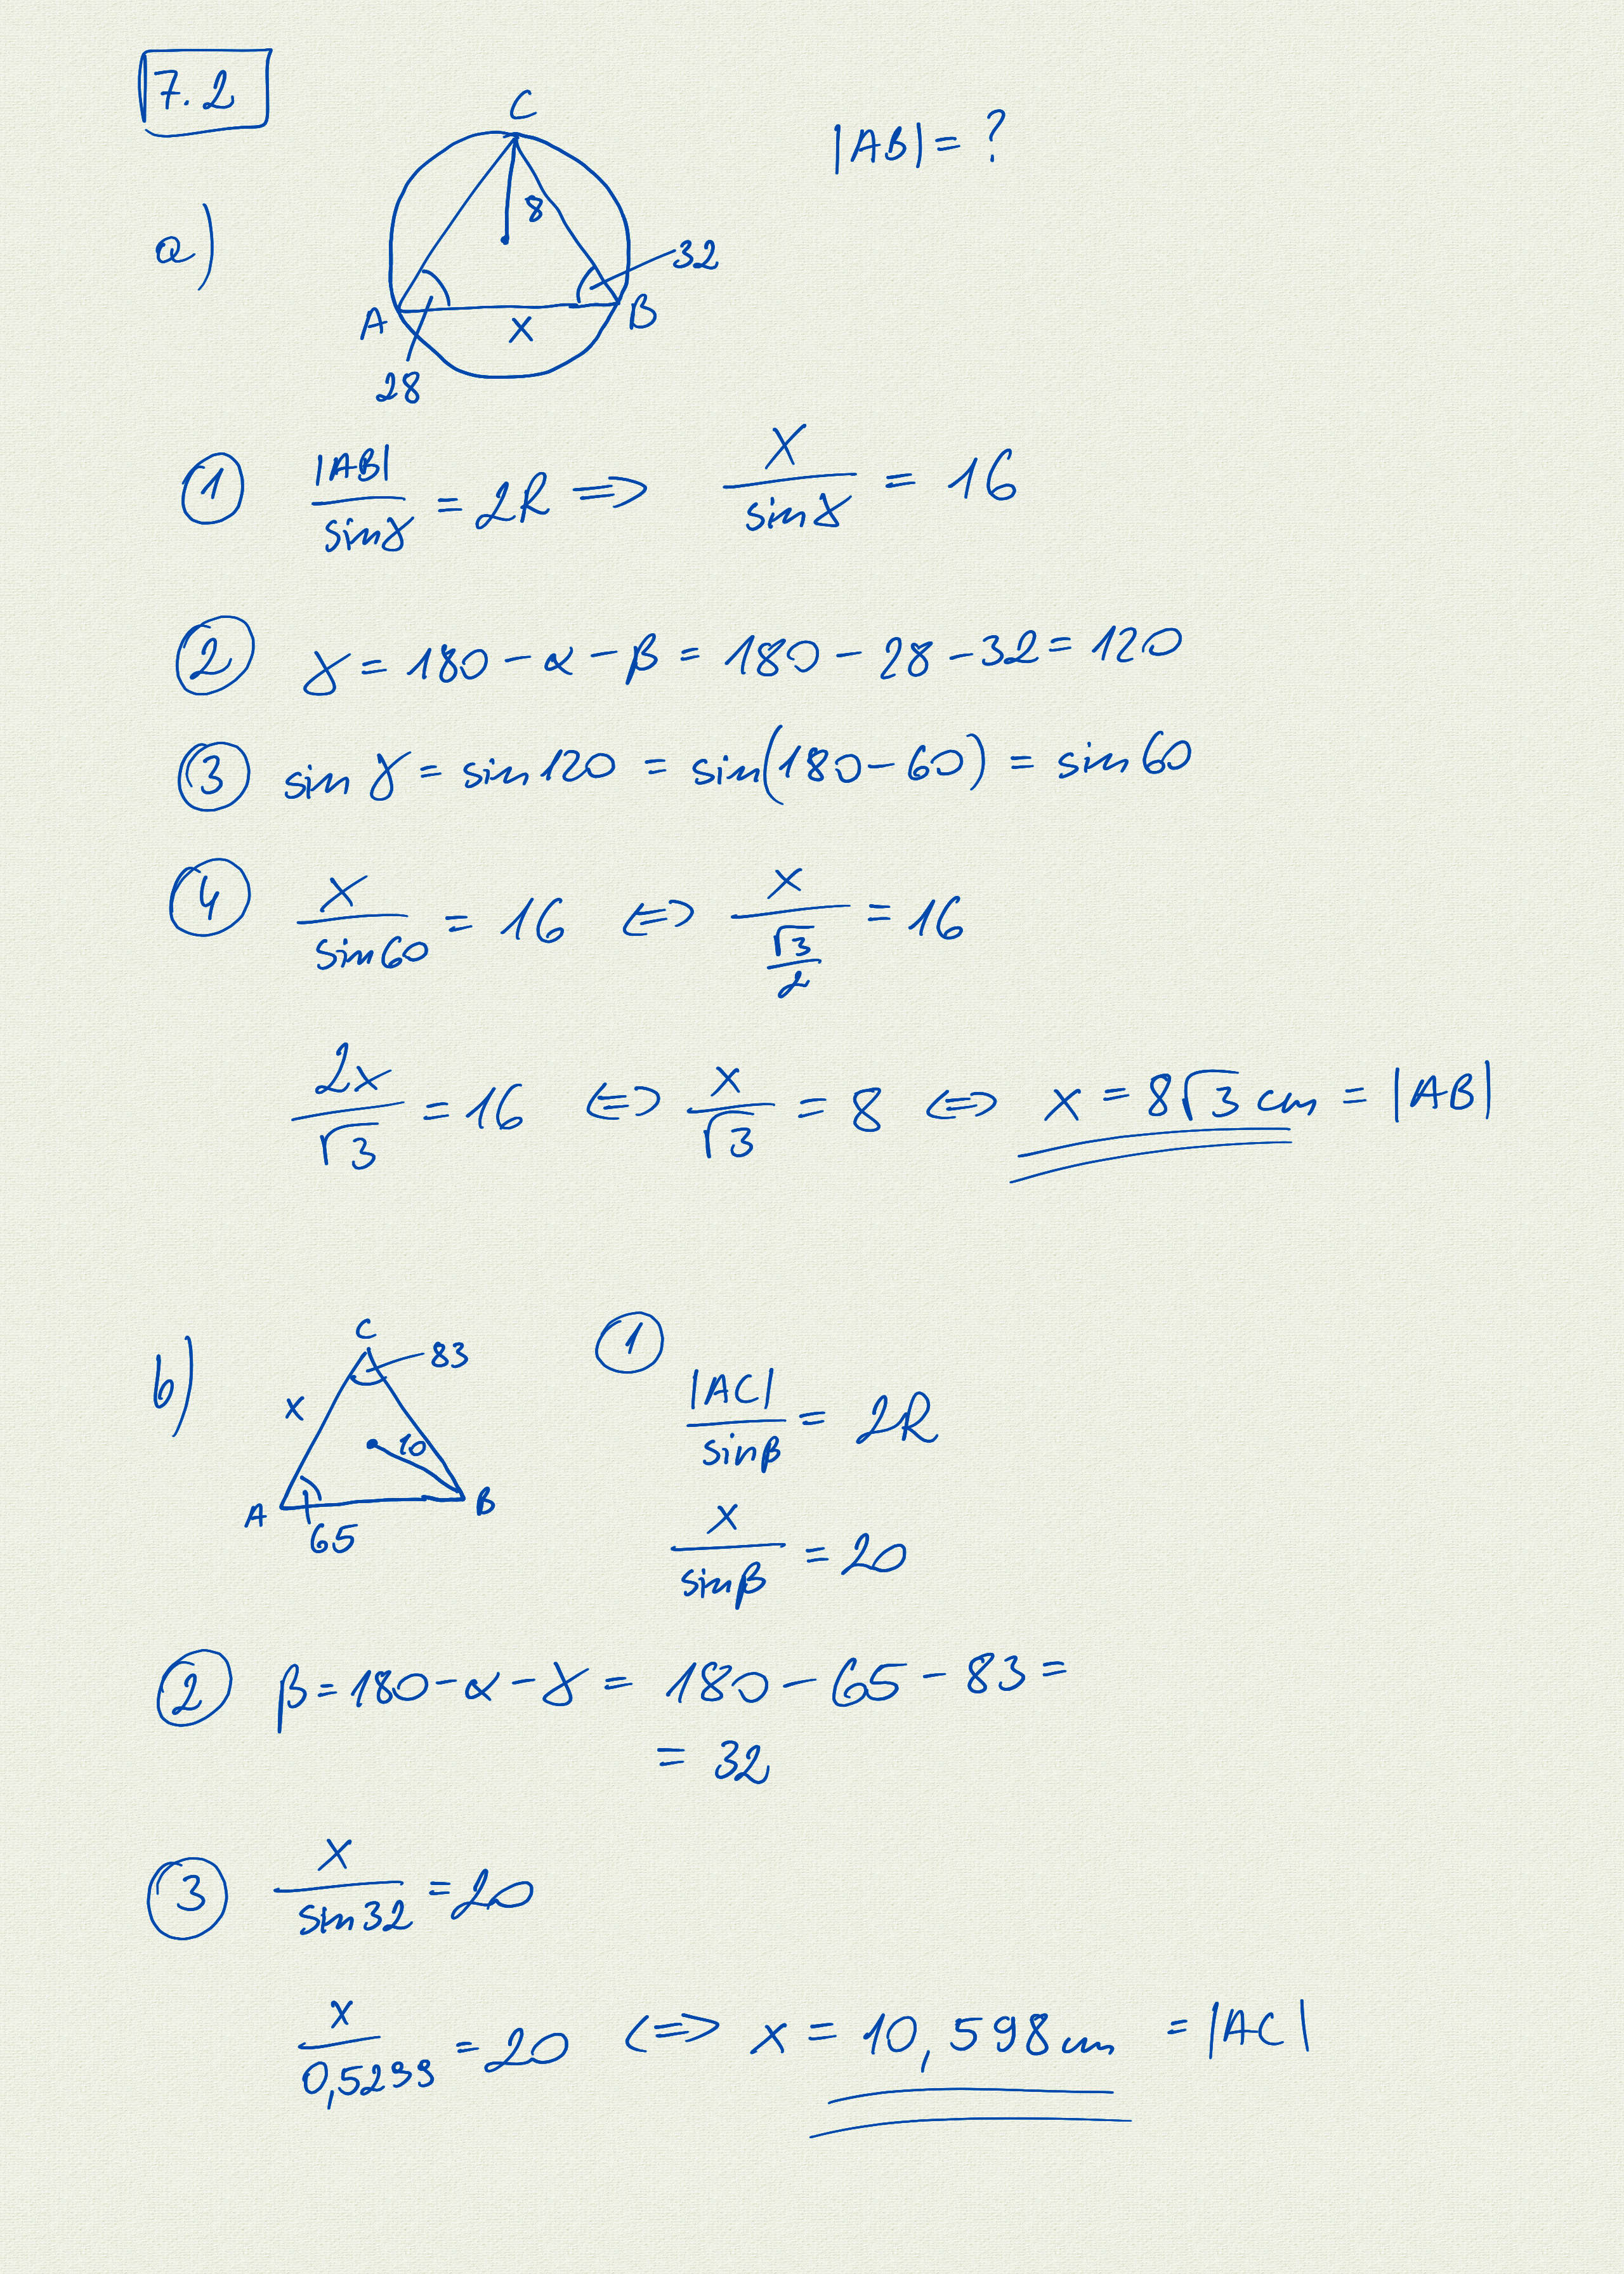 7.2
C
|AB| = ?
a)
8
32
A
x
B
28
① |AB|/sinγ = 2R => x/sinγ = 16
② γ = 180 - α - β = 180 - 28 - 32 = 120
③ sin γ = sin 120 = sin(180 - 60) = sin 60
④ x/sin60 = 16 <=> x/(√3/2) = 16
2x/√3 = 16 <=> x/√3 = 8 <=> x = 8√3 cm = |AB|
b)
C
83
x
10
A
B
65
① |AC|/sinβ = 2R
x/sinβ = 20
② β = 180 - α - γ = 180 - 65 - 83 =
= 32
③ x/sin32 = 20
x/0,5299 = 20 <=> x = 10,598 cm = |AC|